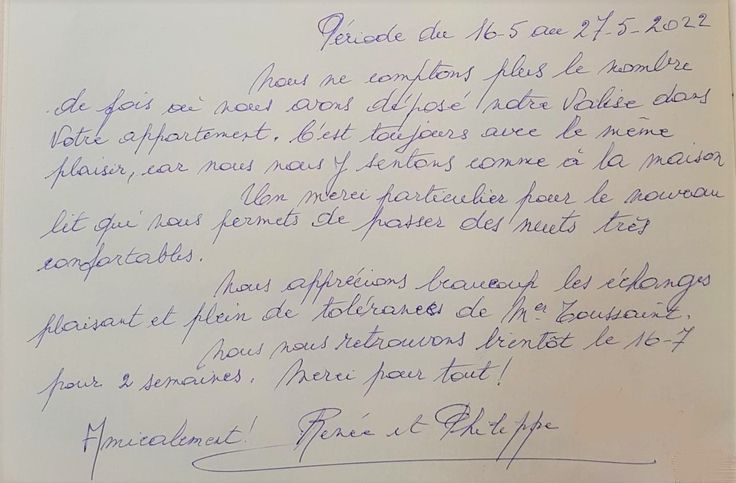 Période du 16-5 au 27-5-2022
Nous ne comptons plus le nombre
de fois où nous avons déposé notre valise dans
votre appartement. C'est toujours avec le même
plaisir, car nous nous y sentons comme à la maison
Un merci particulier pour le nouveau
lit qui nous permets de passer des nuits très
confortables.
Nous apprécions beaucoup les échanges
plaisant et plein de tolérances de Mer Toussaint.
Nous nous retrouvons bientôt le 16-7
pour 2 semaines. Merci pour tout!
Amicalement! Renée et Philippe